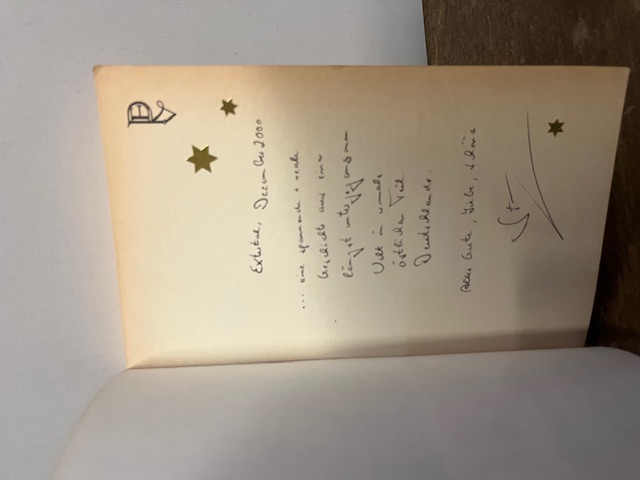 Extertal, Dezember 2000
... eine spannende + reale
Geschichte aus einer
längst untergegangenen
Welt im ehemals
östlichen Teil
Deutschlands.
Alles Gute, Liebe, Schöne